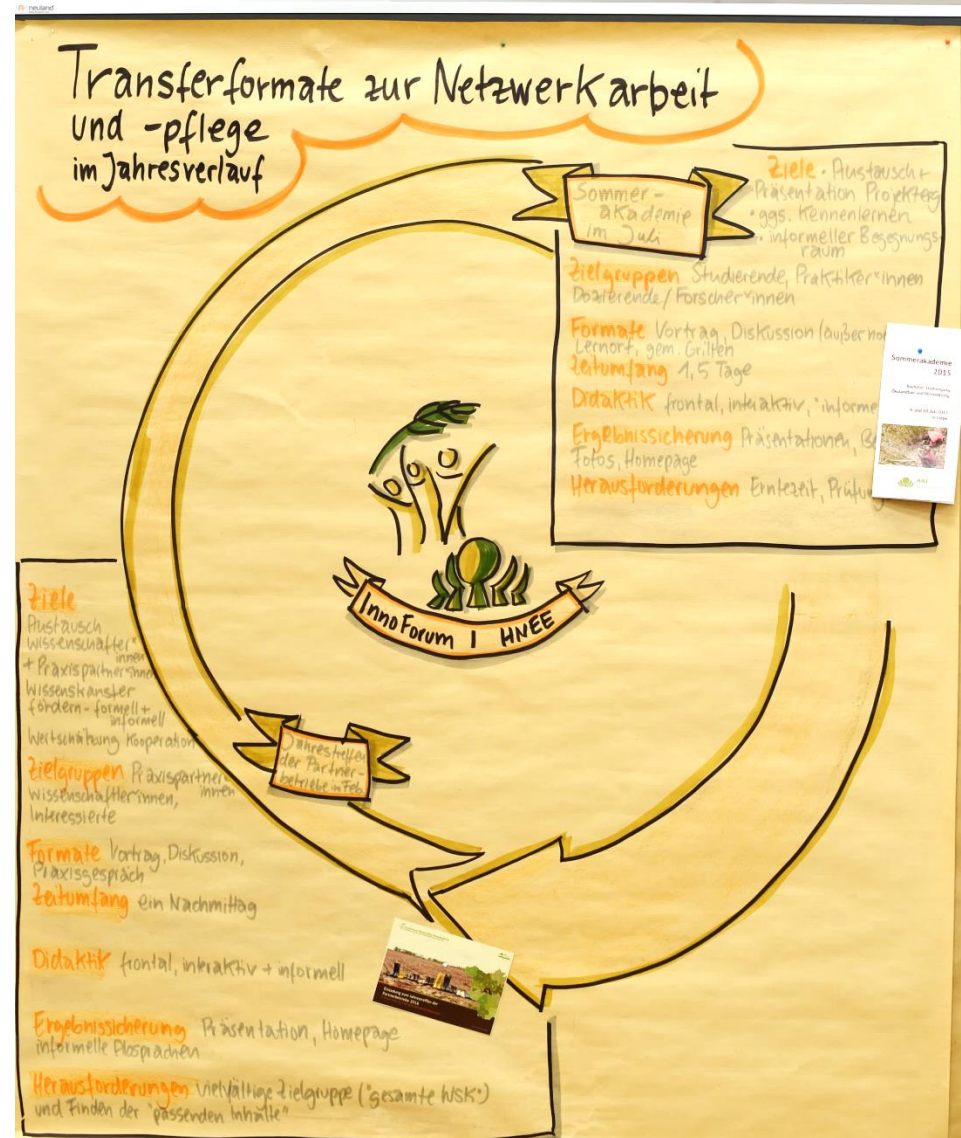 neuland
Transferformate zur Netzwerkarbeit
und -pflege
im Jahresverlauf
Sommer-
akademie
im Juli
Ziele • Austausch +
Präsentation Projekterg
• ggs. Kennenlernen
• informeller Begegnungs-
raum
Zielgruppen Studierende, Praktiker*innen
Dozierende / Forscher*innen
Formate Vortrag, Diskussion (außerho
Lernort, gem. Grillen
Zeitumfang 1,5 Tage
Didaktik frontal, interaktiv, *informe
Ergebnissicherung Präsentationen,
Fotos, Homepage
Herausforderungen Erntezeit, Prüfung
Sommerakademie
2015
InnoForum | HNEE
Jahrestreffen
der Partner-
betriebe in Feb.
Ziele
Austausch
Wissenschafter*
innen
+ Praxispartner*innen
Wissenskanster
fördern - formell +
informell
Wertschätzung Kooperation
Zielgruppen Praxispartner-
innen
Wissenschaftler*innen,
Interessierte
Formate Vortrag, Diskussion,
Praxisgespräch
Zeitumfang ein Nachmittag
Didaktik frontal, interaktiv + informell
Einladung zum Jahrestreffen der
Partnerbetriebe
Ergebnissicherung Präsentation, Homepage
informelle Absprachen
Herausforderungen vielfältige Zielgruppe ("gesamte WSK")
und Finden der "passenden Inhalte"